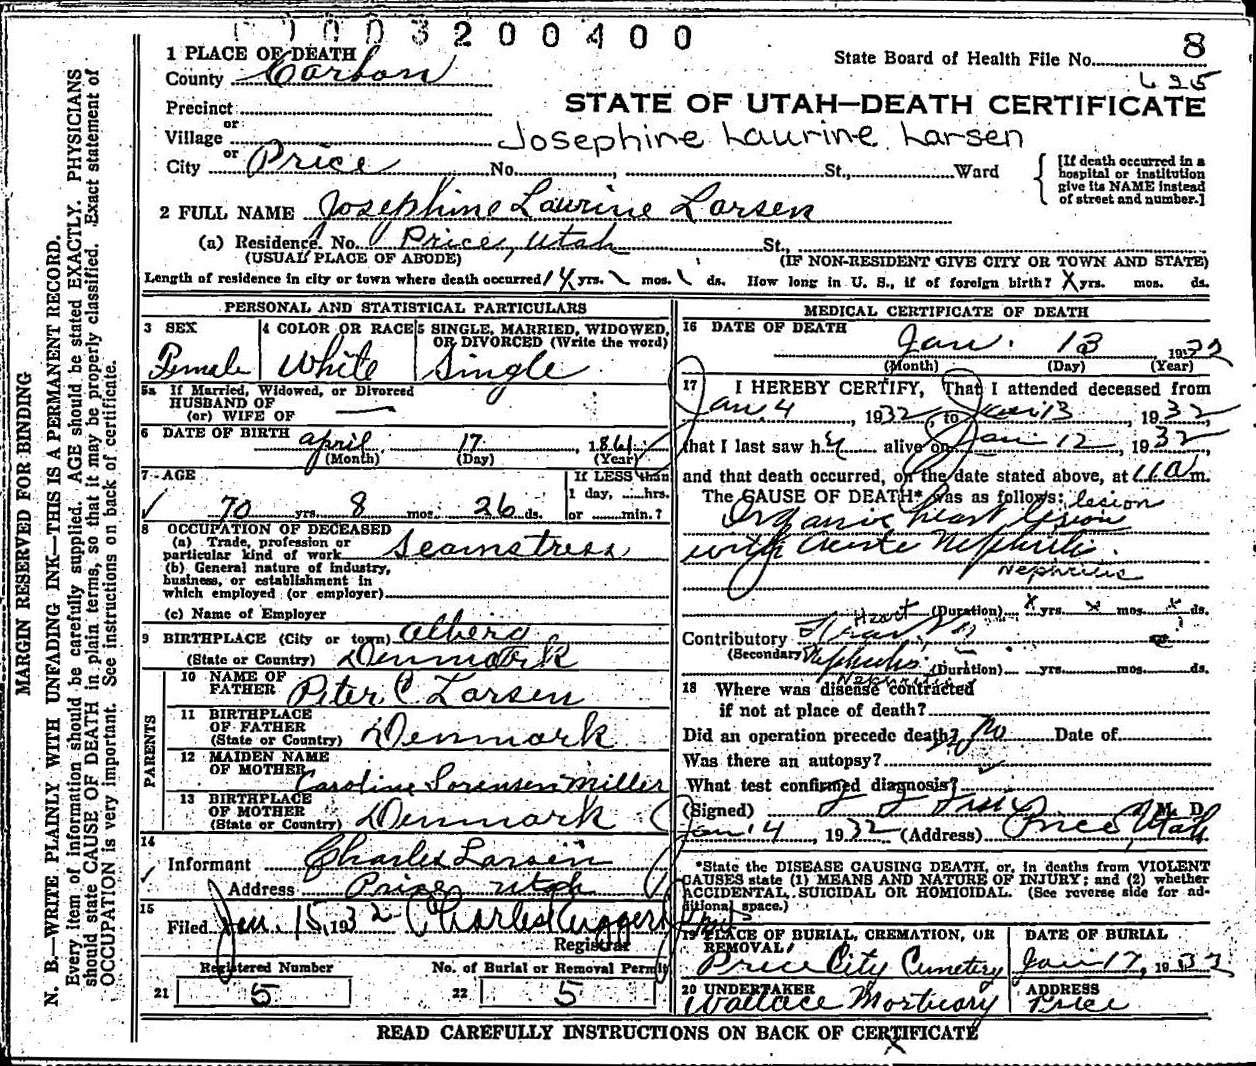 0003200400
State Board of Health File No. 8
625
1 PLACE OF DEATH
County Carbon
STATE OF UTAH—DEATH CERTIFICATE
Precinct
or
Village
Josephine Laurine Larsen
or
City Price No. , St., Ward
[If death occurred in a hospital or institution give its NAME instead of street and number.]
2 FULL NAME Josephine Laurine Larsen
(a) Residence. No. Price, Utah St.,
(USUAL PLACE OF ABODE) (IF NON-RESIDENT GIVE CITY OR TOWN AND STATE)
Length of residence in city or town where death occurred 14 yrs. \ mos. \ ds. How long in U. S., if of foreign birth? X yrs. mos. ds.
PERSONAL AND STATISTICAL PARTICULARS
3 SEX 4 COLOR OR RACE 5 SINGLE, MARRIED, WIDOWED, OR DIVORCED (Write the word)
Female White Single
5a If Married, Widowed, or Divorced
HUSBAND OF
(or) WIFE OF —
6 DATE OF BIRTH April 17, 1861
(Month) (Day) (Year)
7 AGE If LESS than
1 day, ......hrs.
70 yrs. 8 mos. 26 ds. or ......min.?
8 OCCUPATION OF DECEASED
(a) Trade, profession or
particular kind of work Seamstress
(b) General nature of industry,
business, or establishment in
which employed (or employer)
(c) Name of Employer
9 BIRTHPLACE (City or town) Alberg
(State or Country) Denmark
PARENTS
10 NAME OF
FATHER Peter C. Larsen
11 BIRTHPLACE
OF FATHER
(State or Country) Denmark
12 MAIDEN NAME
OF MOTHER Caroline Sorensen Miller
13 BIRTHPLACE
OF MOTHER
(State or Country) Denmark
14
Informant Charles Larsen
Address Price, Utah
15
Filed Jan. 15, 1932 Charles Ruggeri
Registrar
Registered Number No. of Burial or Removal Permit
21 5 22 5
MEDICAL CERTIFICATE OF DEATH
16 DATE OF DEATH
Jan. 13 1932
(Month) (Day) (Year)
17 I HEREBY CERTIFY, That I attended deceased from
Jan 4, 1932, to Jan 13, 1932
that I last saw her alive on Jan 12, 1932
and that death occurred, on the date stated above, at m.
The CAUSE OF DEATH* was as follows: lesion
Organic heart lesion
with acute Nephritis.
Nephritis
(Duration) X yrs. X mos. X ds.
Heart
Contributory
(Secondary) Nephritis (Duration) yrs. mos. ds.
Nephritis
18 Where was disease contracted
if not at place of death?
Did an operation precede death? No Date of
Was there an autopsy?
What test confirmed diagnosis?
(Signed) M. D.
Jan 14 1932 (Address) Price, Utah
*State the DISEASE CAUSING DEATH, or, in deaths from VIOLENT
CAUSES state (1) MEANS AND NATURE OF INJURY; and (2) whether
ACCIDENTAL, SUICIDAL OR HOMICIDAL. (See reverse side for ad-
ditional space.)
19 PLACE OF BURIAL, CREMATION, OR
REMOVAL DATE OF BURIAL
Price City Cemetery Jan 17, 1932
20 UNDERTAKER ADDRESS
Wallace Mortuary Price
READ CAREFULLY INSTRUCTIONS ON BACK OF CERTIFICATE
MARGIN RESERVED FOR BINDING
N. B.—WRITE PLAINLY WITH UNFADING INK—THIS IS A PERMANENT RECORD.
Every item of information should be carefully supplied. AGE should be stated EXACTLY. PHYSICIANS
should state CAUSE OF DEATH in plain terms, so that it may be properly classified. Exact statement of
OCCUPATION is very important. See instructions on back of certificate.